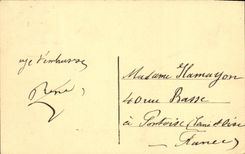 je t'embrasse
René
Madame Hamayon
40 rue Basse
à Pontoise (Seine & Oise
France